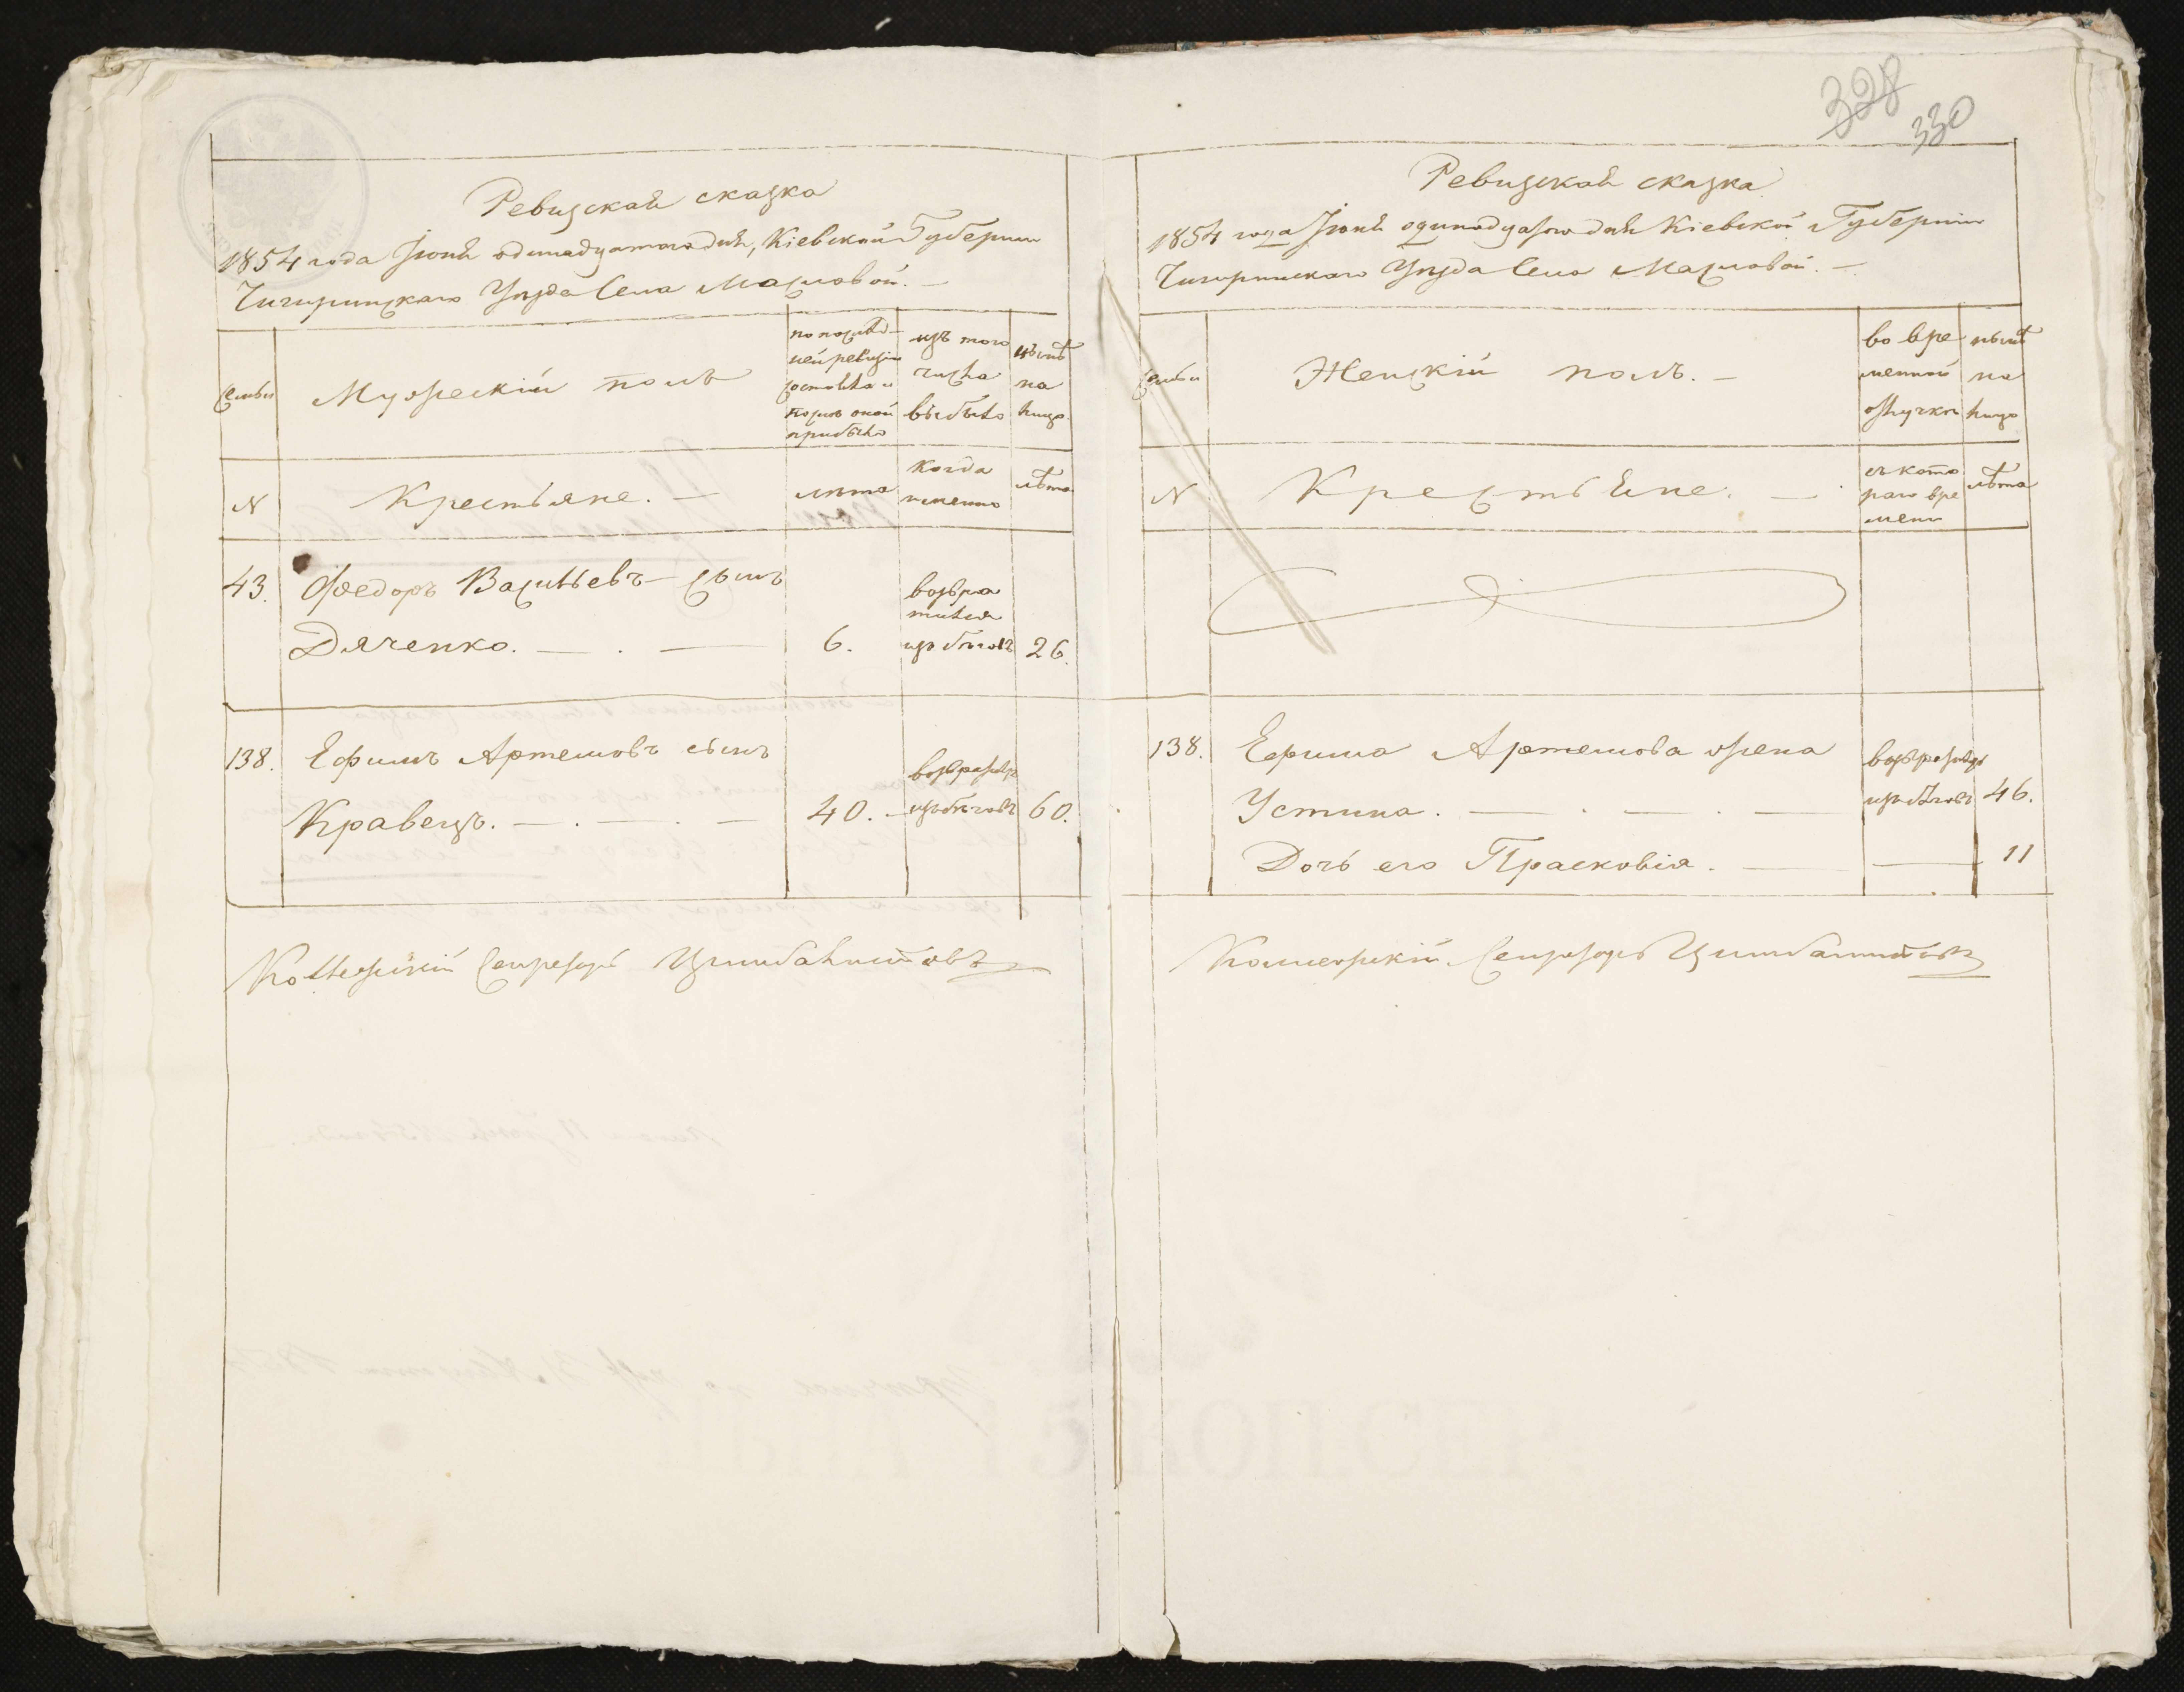 Ревизская сказка
1854 года Іюня одинадцатого дня, Кіевской Губерніи
Чигиринскаго Уезда Села Масловой. —
Семьи
Мужескій полъ
по послѣд-
ней ревизіи
состояло и
послѣ оной
прибыло
изъ того
числа
выбыло
нынѣ
на
лицо
N
Крестьяне. —
лета
когда
именно
лѣта
43. Федоръ Васильевъ сынъ
Дяченко. — . — 6. возвра
тился
изъ бѣговъ 26.
138. Ефимъ Артемовъ сынъ
Кравецъ. — . — . — 40. изъ бѣговъ 60.
Коллежскій Секретарь
328
330
Ревизская сказка
1854 года Іюня одинадцатого дня Кіевской Губерніи
Чигиринскаго Уезда Села Масловой. —
Семьи
Женскій полъ. —
во вре
менной
отлучки
нынѣ
на
лицо
N
Крестьяне. —
съ кото
раго вре
мени
лѣта
138. Ефима Артемова жена
Устина. — . — . — изъ бѣговъ 46.
Дочь его Прасковія. — — 11
Коллежскій Секретарь